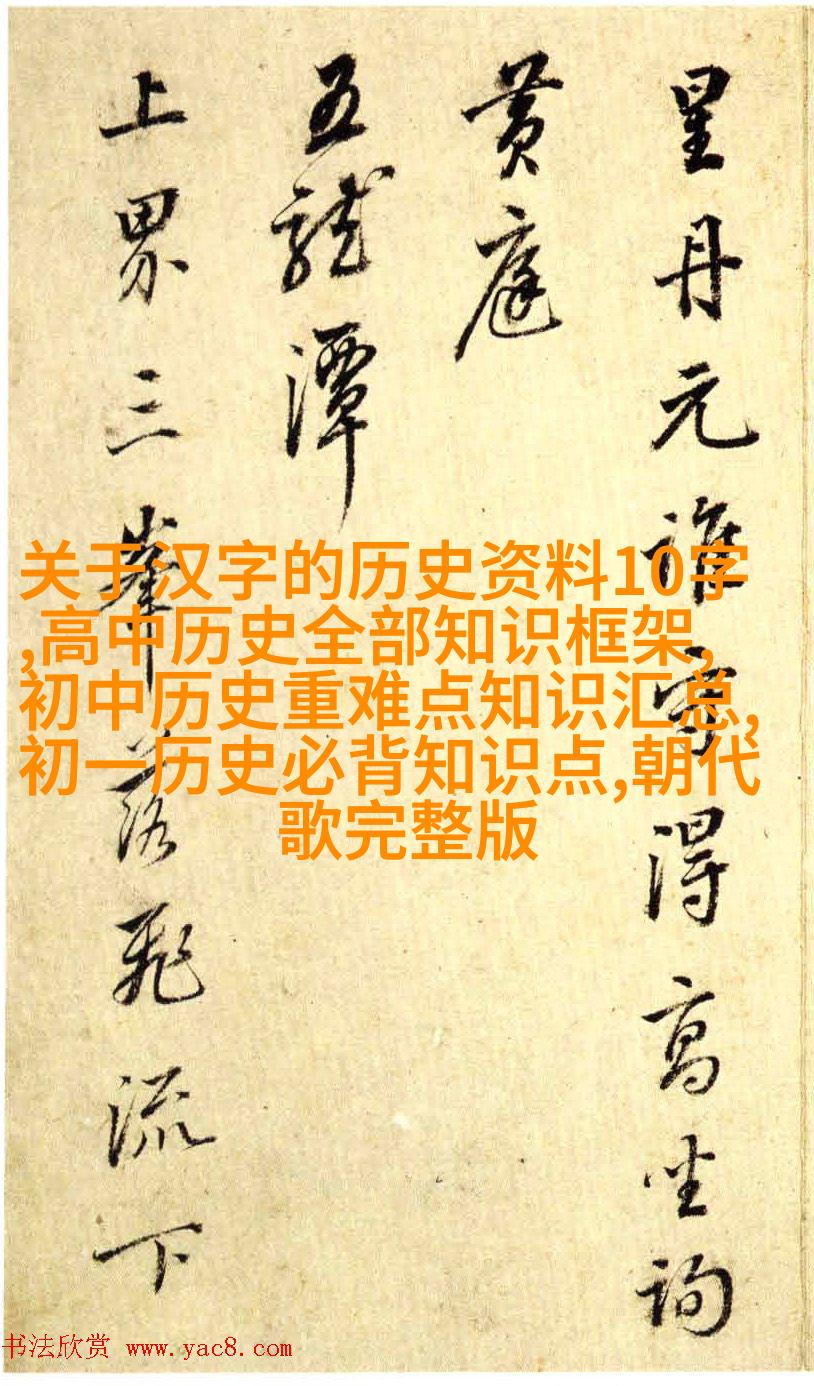 星丹元谁守得高坐询
黄庭
五龙潭
上界三峯落飛流下
关于汉字的历史资料10字
,高中历史全部知识框架,
初中历史重难点知识汇总,
初一历史必背知识点,朝代
歌完整版
书法欣赏 www.yac8.com